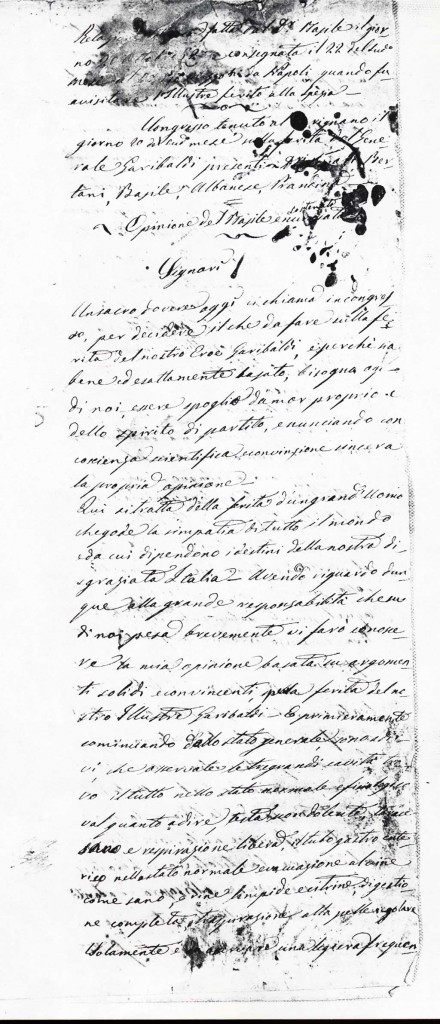 fatta dal Dr Basile il gior
no consegnata il 22 del sudo
mese Napoli quando fu
a visita Illustre ferito alla Spezia
Congresso tenuto
giorno 20 mese sulla ferita del Gene
rale Garibaldi presenti Ber
tani, Basile, Albanese, Prandina
Opinione del Basile
Signori!
Un sacro dovere oggi ci chiama in congres
so, per decidere il che da fare sulla fe
rita del nostro Eroe Garibaldi, e perchè sia
bene ed esattamente basato, bisogna ogn
di noi, essere spoglio d'amor proprio e
dello spirito di partito, enunciando con
coscienza scientifica, e convinzione sincera
la propria opinione
Qui si tratta della ferita d'un grand'Uomo
che gode la simpatia di tutto il mondo
e da cui dipendono i destini della nostra di
sgraziata Italia – Avendo riguardo dun
que alla grande responsabilità che su
di noi pesa brevemente vi farò conosce
re la mia opinione basata su argomen
ti solidi e convincenti, sulla ferita del no
stro Illustre Garibaldi – E primieramente
cominciando dallo stato generale,
vi, che osservate le tre grandi cavità tro
vo il tutto nello stato normale e fisiologico
val quanto a dire, testa non dolente,
sano e respirazione libera, il tubo gastro ente
rico nello stato normale evacuazione alvine
come sano, orine limpide e citrine, digestio
ne completa, traspirazione alla pelle regolare
solamente una leggiera frequen